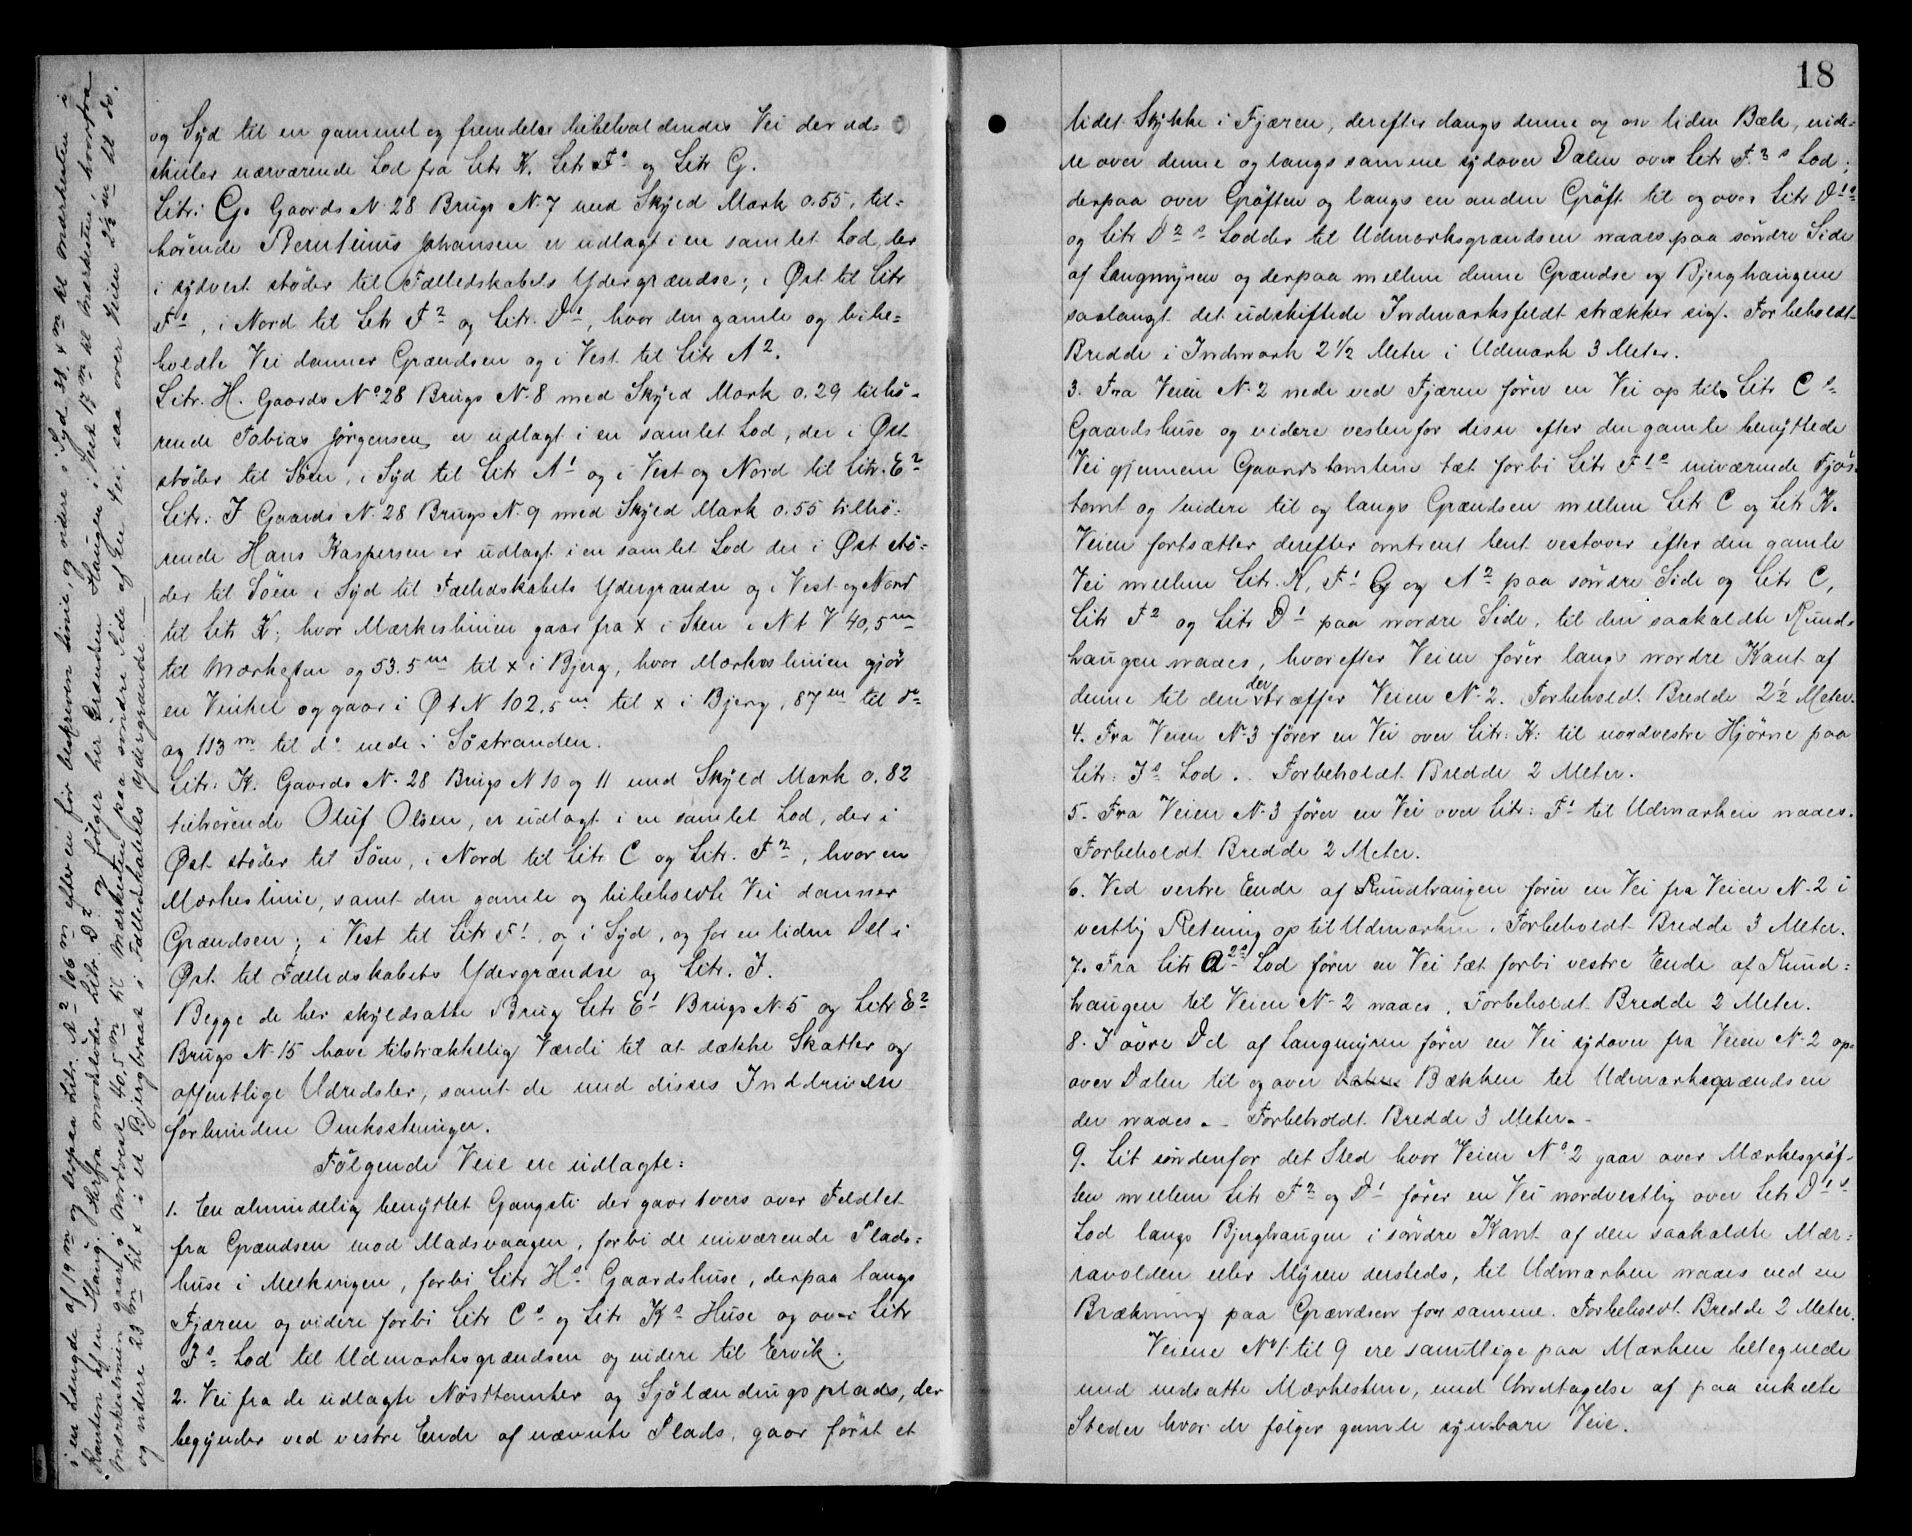 og Syd til en gammel og fremdeles bibeholdendes Vei der ad-
skiler nærværende Lod fra Litr K. Litr F¹ og Litr G.
Litr: G. Gaards N. 28 Brugs N. 7 med Skyld Mark 0.55, til-
hørende Berntinus Johansen er udlagt i en samlet Lod, der
i sydvest støder til Fælledskabets Ydergrændse; i Øst til Litr
F¹, i Nord til Litr F² og Litr. D¹, hvor den gamle og bibe-
holdte Vei danner Grændsen og i Vest til Litr A².
Litr. H. Gaards Nº 28 Brugs N. 8 med Skyld Mark 0.29 tilhø-
rende Tobias Jørgensen er udlagt i en samlet Lod, der i Øst
støder til Søen, i Syd til Litr A¹ og i Vest og Nord til Litr. E²
Litr: J Gaards N. 28 Brugs N. 9 med Skyld Mark 0.55 tilhø-
rende Hans Kaspersen er udlagt i en samlet Lod der i Øst stø-
der til Søen i Syd til Fælledskabets Ydergrændse og i Vest og Nord
til Litr K; hvor Mærkeslinien gaar fra x i Sten i N t V 40,5 m
til Mærkesten og 53.5 m til x i Bjerg, hvor Mærkeslinien gjør
en Vinkel og gaar i Ø t N 102,5 m til x i Bjerg, 87 m til do
og 113 m til do nede i Søstranden.
Litr: K. Gaards N. 28 Brugs N 10 og 11 med Skyld Mark 0.82
tilhørende Oluf Olsen, er udlagt i en samlet Lod, der i
Øst støder til Søen, i Nord til Litr C og Litr. F², hvor en
Mærkeslinie, samt den gamle og bibeholdte Vei danner
Grændsen; i Vest til Litr F¹, og i Syd, og for en liden Del i
Øst til Fælledskabets Ydergrændse og Litr. J.
Begge de her skyldsatte Brug Litr E¹ Brugs N. 5 og Litr E²
Brugs N. 15 have tilstrækkelig Værdi til at dække Skatter og
offentlige Udredsler, samt de med disses Inddrivelse
forbundne Omkostninger.
Følgende Veie ere udlagte:
1. En almindelig benyttet Gangsti der gaar tvers over Feldtet
fra Grændsen mod Madsvaagen, forbi de nuværende Plads-
huse i Melkvigen, forbi Litr Hs Gaardshuse, derpaa langs
Fjæren og videre forbi Litr Cs og Litr Ks Huse og over Litr
Js Lod til Udmarksgrændsen og videre til Ervik.
2. Vei fra de udlagte Nøsttomter og Sjølændingsplads, der
begynder ved vestre Ende af nævnte Plads, gaar først et
i en Længde af 19 m og derpaa Litr. A² 106 m efter en før beskreven Linie, og videre i Syd 38,4 m til Mærkesten i
Kanten af en Haug. Herfra modstøder Litr. D² og følger her Grændsen Haugen i Vest 17 m til Mærkesten, hvorfra
Mærkeslinien gaar i Nordvest 40,5 m til Mærkesten paa søndre Side af en Vei, saa over Veien 25 m til do,
og videre 23 m til x i et Bjergbraat i Fælledskabets Ydergrændse.
18
lidet Stykke i Fjæren, derefter langs denne og en liden Bæk, vide-
re over denne og langs samme sydover Dalen over Litr F²s Lod;
derpaa over Grøften og langs en anden Grøft til og over Litr D¹s
og Litr D²s Lodder til Udmarksgrændsen naaes paa søndre Side
af Langmyren og derpaa mellem denne Grændse og Bjerghaugene
saalangt det udskiftede Indmarksfeldt strækker sig. Forbeholdt
Bredde i Indmark 2½ Meter i Udmark 3 Meter.
3. Fra Veien N. 2 nede ved Fjæren fører en Vei op til Litr Cs
Gaardshuse og videre vestenfor disse efter den gamle benyttede
Vei gjennem Gaardstomtene tæt forbi Litr F¹s nuværende Fjøs-
tomt og videre til og langs Grændsen mellem Litr C og Litr K.
Veien fortsætter derefter omtrent bent vestover efter den gamle
Vei mellem Litr. K, F¹ G og A² paa søndre Side og Litr C,
Litr F² og Litr D¹ paa nordre Side, til den saakaldte Rund-
haugen naaes, hvorefter Veien fører langs nordre Kant af
denne til den der træffer Veien N. 2. Forbeholdt Bredde 2½ Meter.
4. Fra Veien N. 3 fører en Vei over Litr: K: til nordvestre Hjørne paa
Litr: Js Lod. Forbeholdt Bredde 2 Meter.
5. Fra Veien N. 3 fører en Vei over Litr: F¹ til Udmarken naaes.
Forbeholdt Bredde 2 Meter.
6. Ved vestre Ende af Rundhaugen fører en Vei fra Veien N. 2 i
vestlig Retning op til Udmarken. Forbeholdt Bredde 3 Meter.
7. Fra Litr A²s Lod fører en Vei tæt forbi vestre Ende af Rund-
haugen til Veien N. 2 naaes. Forbeholdt Bredde 2 Meter.
8. I øvre Del af Langmyren fører en Vei sydover fra Veien N. 2 op-
over Dalen til og over Bækken til Udmarksgrændsen
der naaes. - Forbeholdt Bredde 3 Meter. -
9. Lit søndenfor det Sted hvor Veien Nº 2 gaar over Mærkesgrøf-
ten mellem Litr F² og D¹ fører en Vei nordvestlig over Litr D¹s
Lod langs Bjerghaugen i søndre Kant af den saakaldte Mær-
ravolden eller Myren dersteds, til Udmarken naaes ved en
Brækning paa Grændsen for samme. Forbeholdt Bredde 2 Meter.
Veiene Nº 1 til 9 ere samtlige paa Marken betegnede
med nedsatte Mærkestene, med Undtagelse af paa enkelte
Steder hvor de følger gamle synbare Veie.